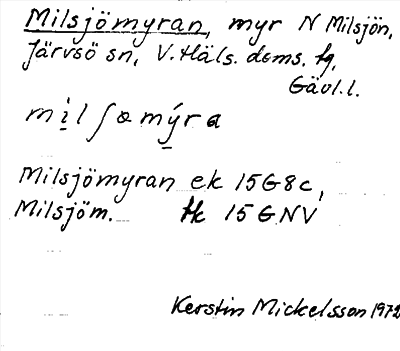 Milsjömyran, myr N Milsjön,
Järvsö sn, V. Häls. doms. tg,
Gävl. l.
mi̱lʃəmý̱ra
Milsjömyran ek 15G8c,
Milsjöm. tk 15 GNV
Kerstin Mickelsson 1972